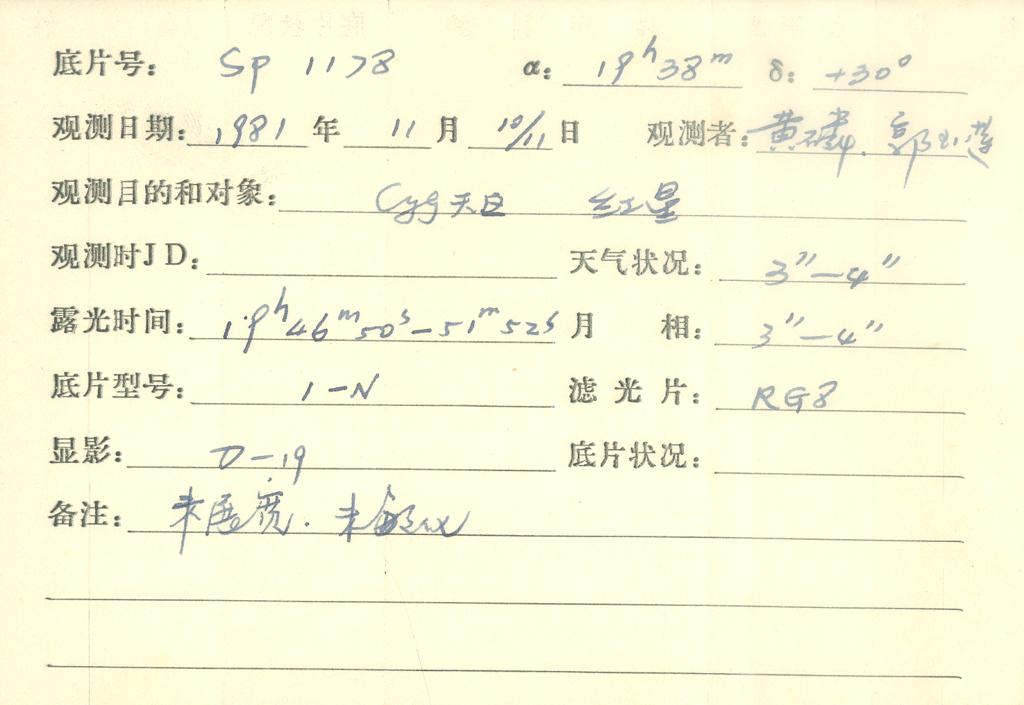 底片号: SP 1178 α: 19ʰ38ᵐ δ: +30°
观测日期: 1981 年 11 月 10/11 日 观测者: 黄磷. 郭玉莲
观测目的和对象: Cyg天区 红星
观测时JD: 天气状况: 3″—4″
露光时间: 19ʰ46ᵐ50ˢ—51ᵐ52ˢ 月 相: 3″—4″
底片型号: I-N 滤光片: RG8
显影: D-19 底片状况:
备注: 未展宽. 未敏化